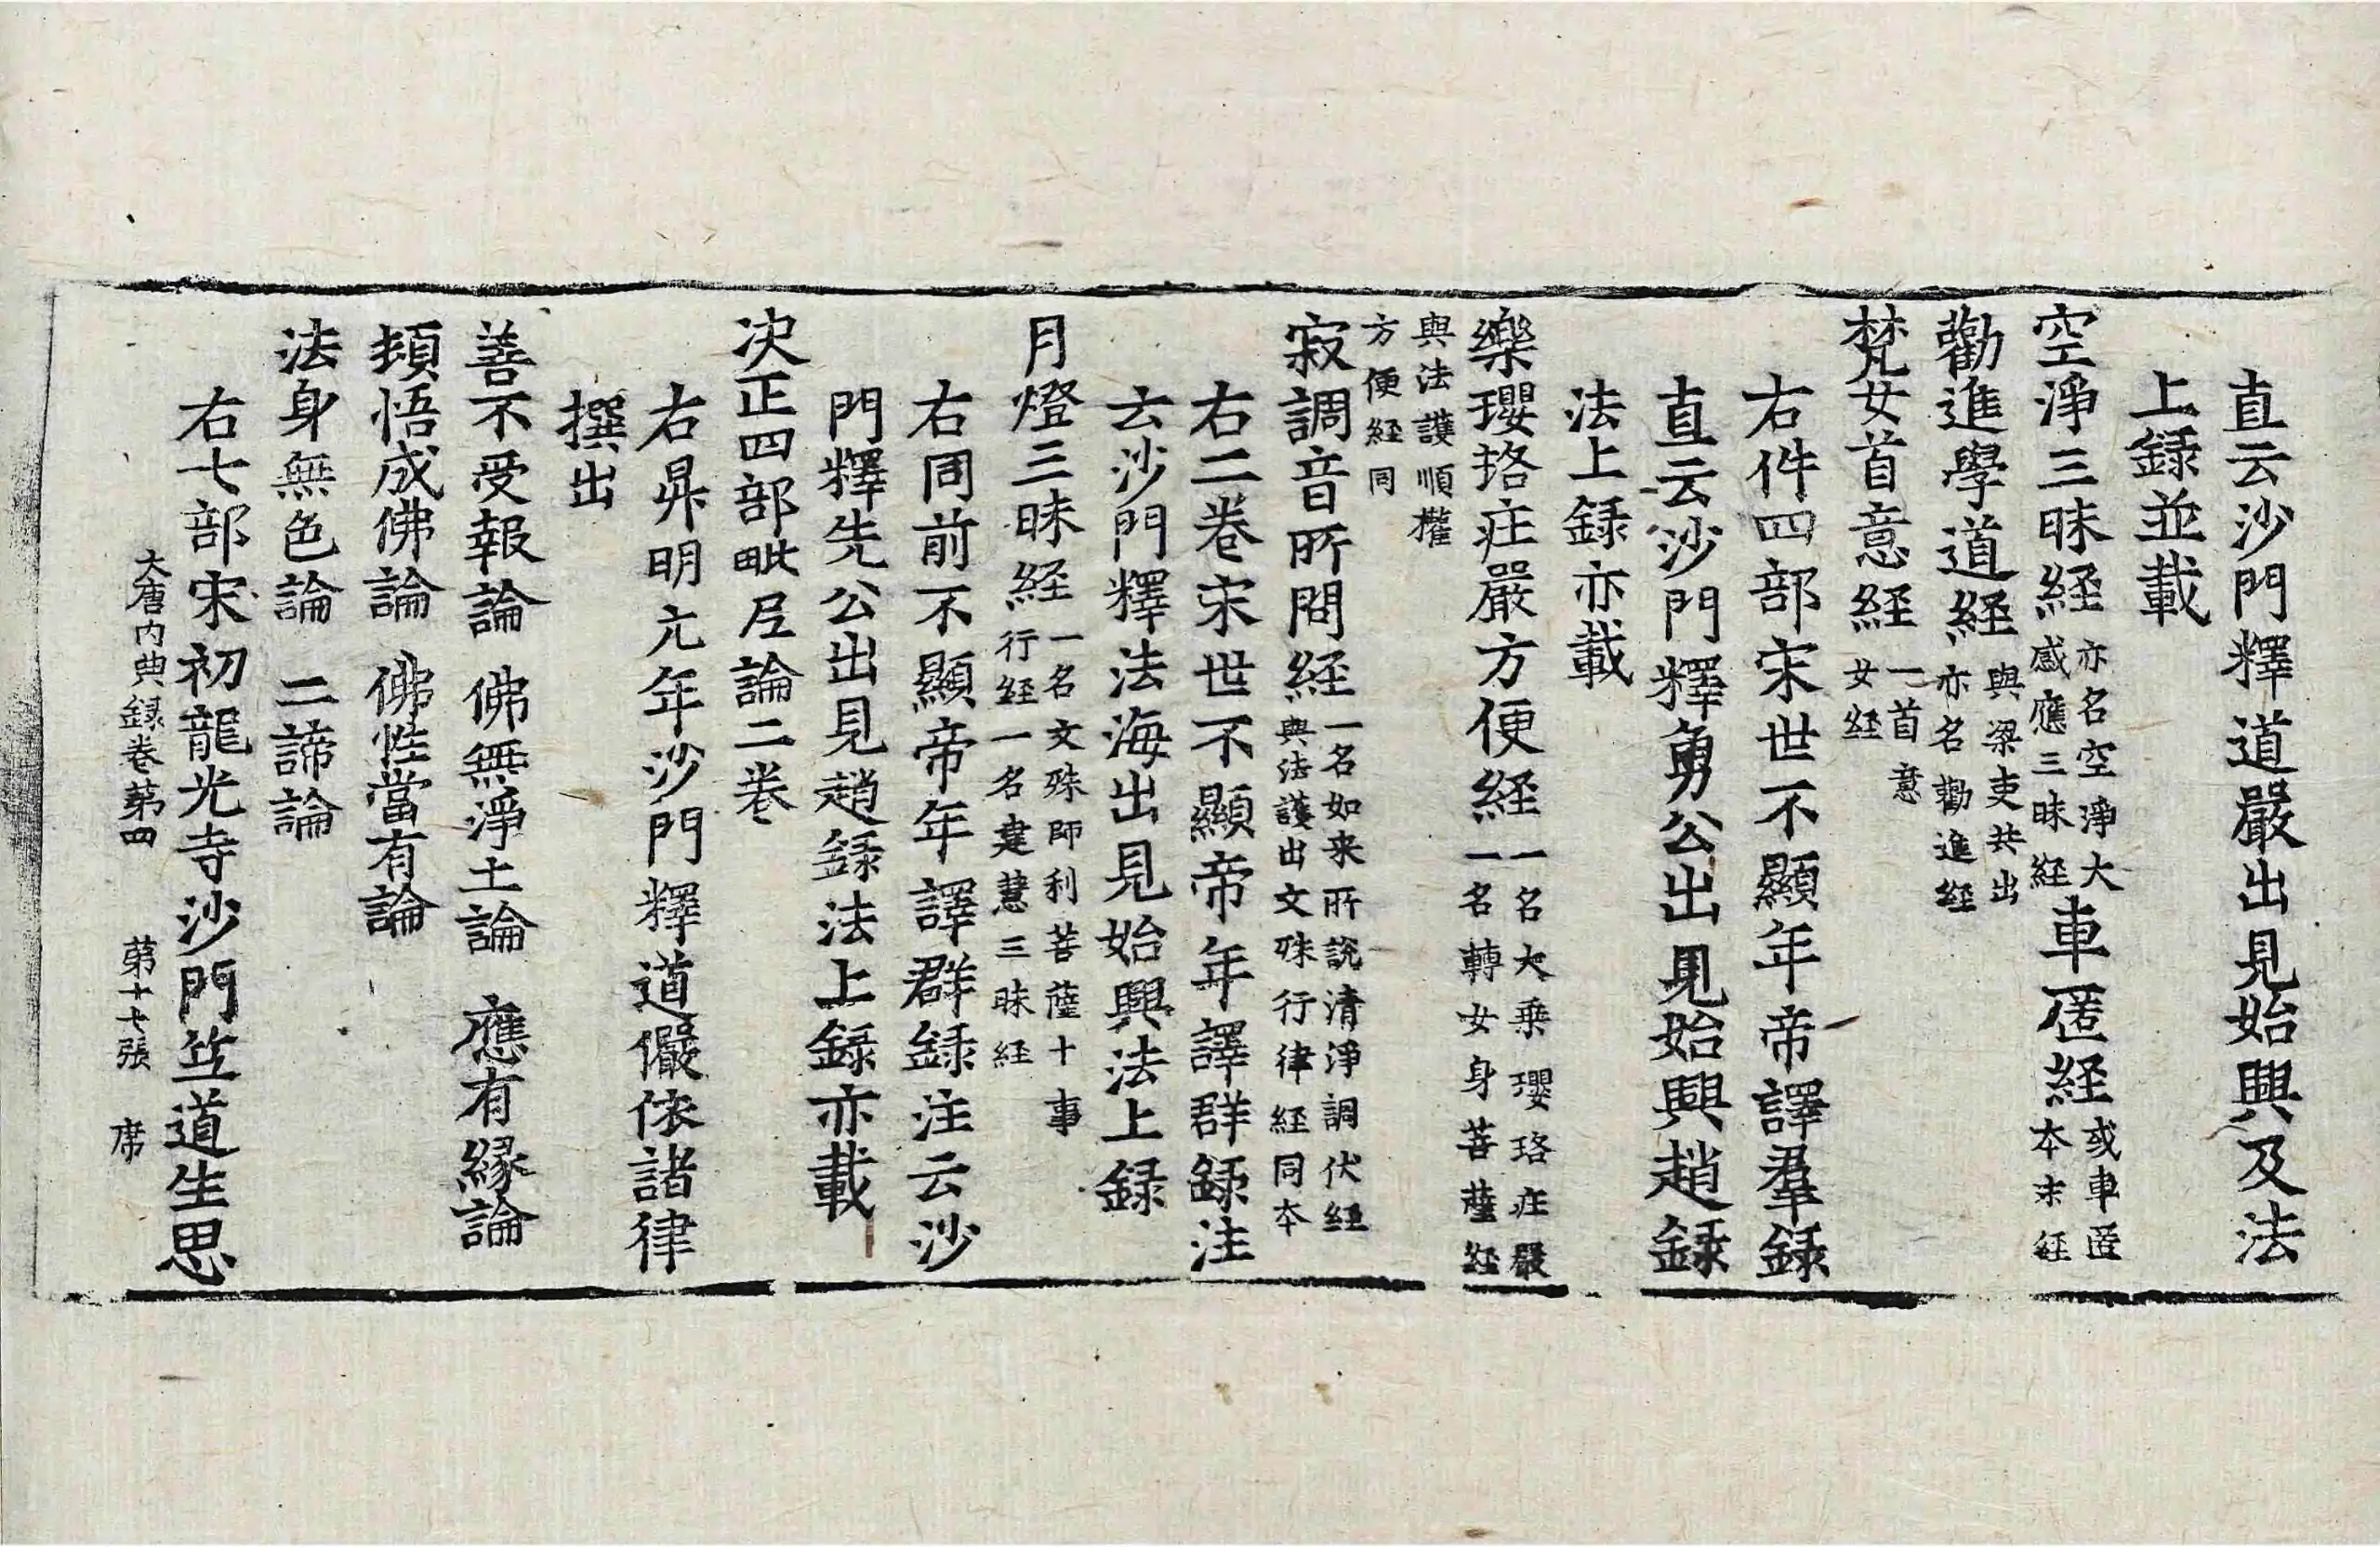 直云沙門釋道嚴出見始興及法
上録並載
空淨三昧経亦名空淨大感應三昧経車匿経或車匿本末経
勸進學道経與梁吏共出亦名勸進経
梵女首意経一首意女経
右件四部宋世不顯年帝譯羣録
直云沙門釋勇公出見始興趙録
法上録亦載
樂瓔珞庄嚴方便経一名大乗瓔珞庄嚴一名轉女身菩薩経
與法護順權方便経同
寂調音所問経一名如来所說清淨調伏経與法護出文殊行律経同本
右二卷宋世不顯帝年譯群録注
云沙門釋法海出見始興法上録
月燈三昧経一名文殊師利菩薩十事行経一名建慧三昧経
右同前不顯帝年譯群録注云沙
門釋先公出見趙録法上録亦載
决正四部毗尼論二卷
右昇明元年沙門釋道儼依諸律
撰出
善不受報論 佛無淨土論 應有縁論
頓悟成佛論 佛性當有論
法身無色論 二諦論
右七部宋初龍光寺沙門竺道生思
大唐内典録卷第四 第十七張 席